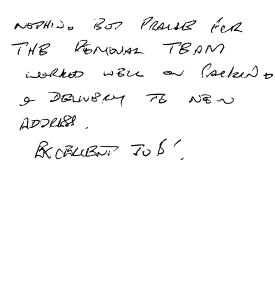 NOTHING BUT PRAISE FOR
THE REMOVAL TEAM
WORKED WELL ON PACKING
& DELIVERY TO NEW
ADDRESS.
EXCELLENT JOB!